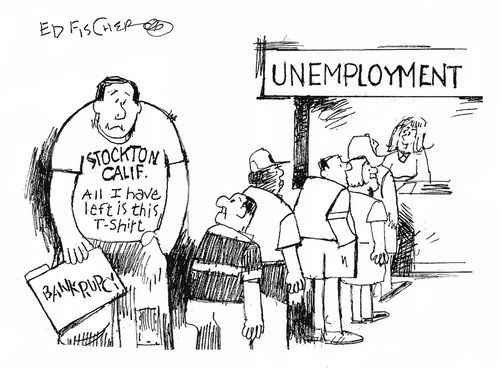 ED FISCHER
UNEMPLOYMENT
STOCKTON
CALIF.
All I have
left is this
T-Shirt
BANKRUPCY